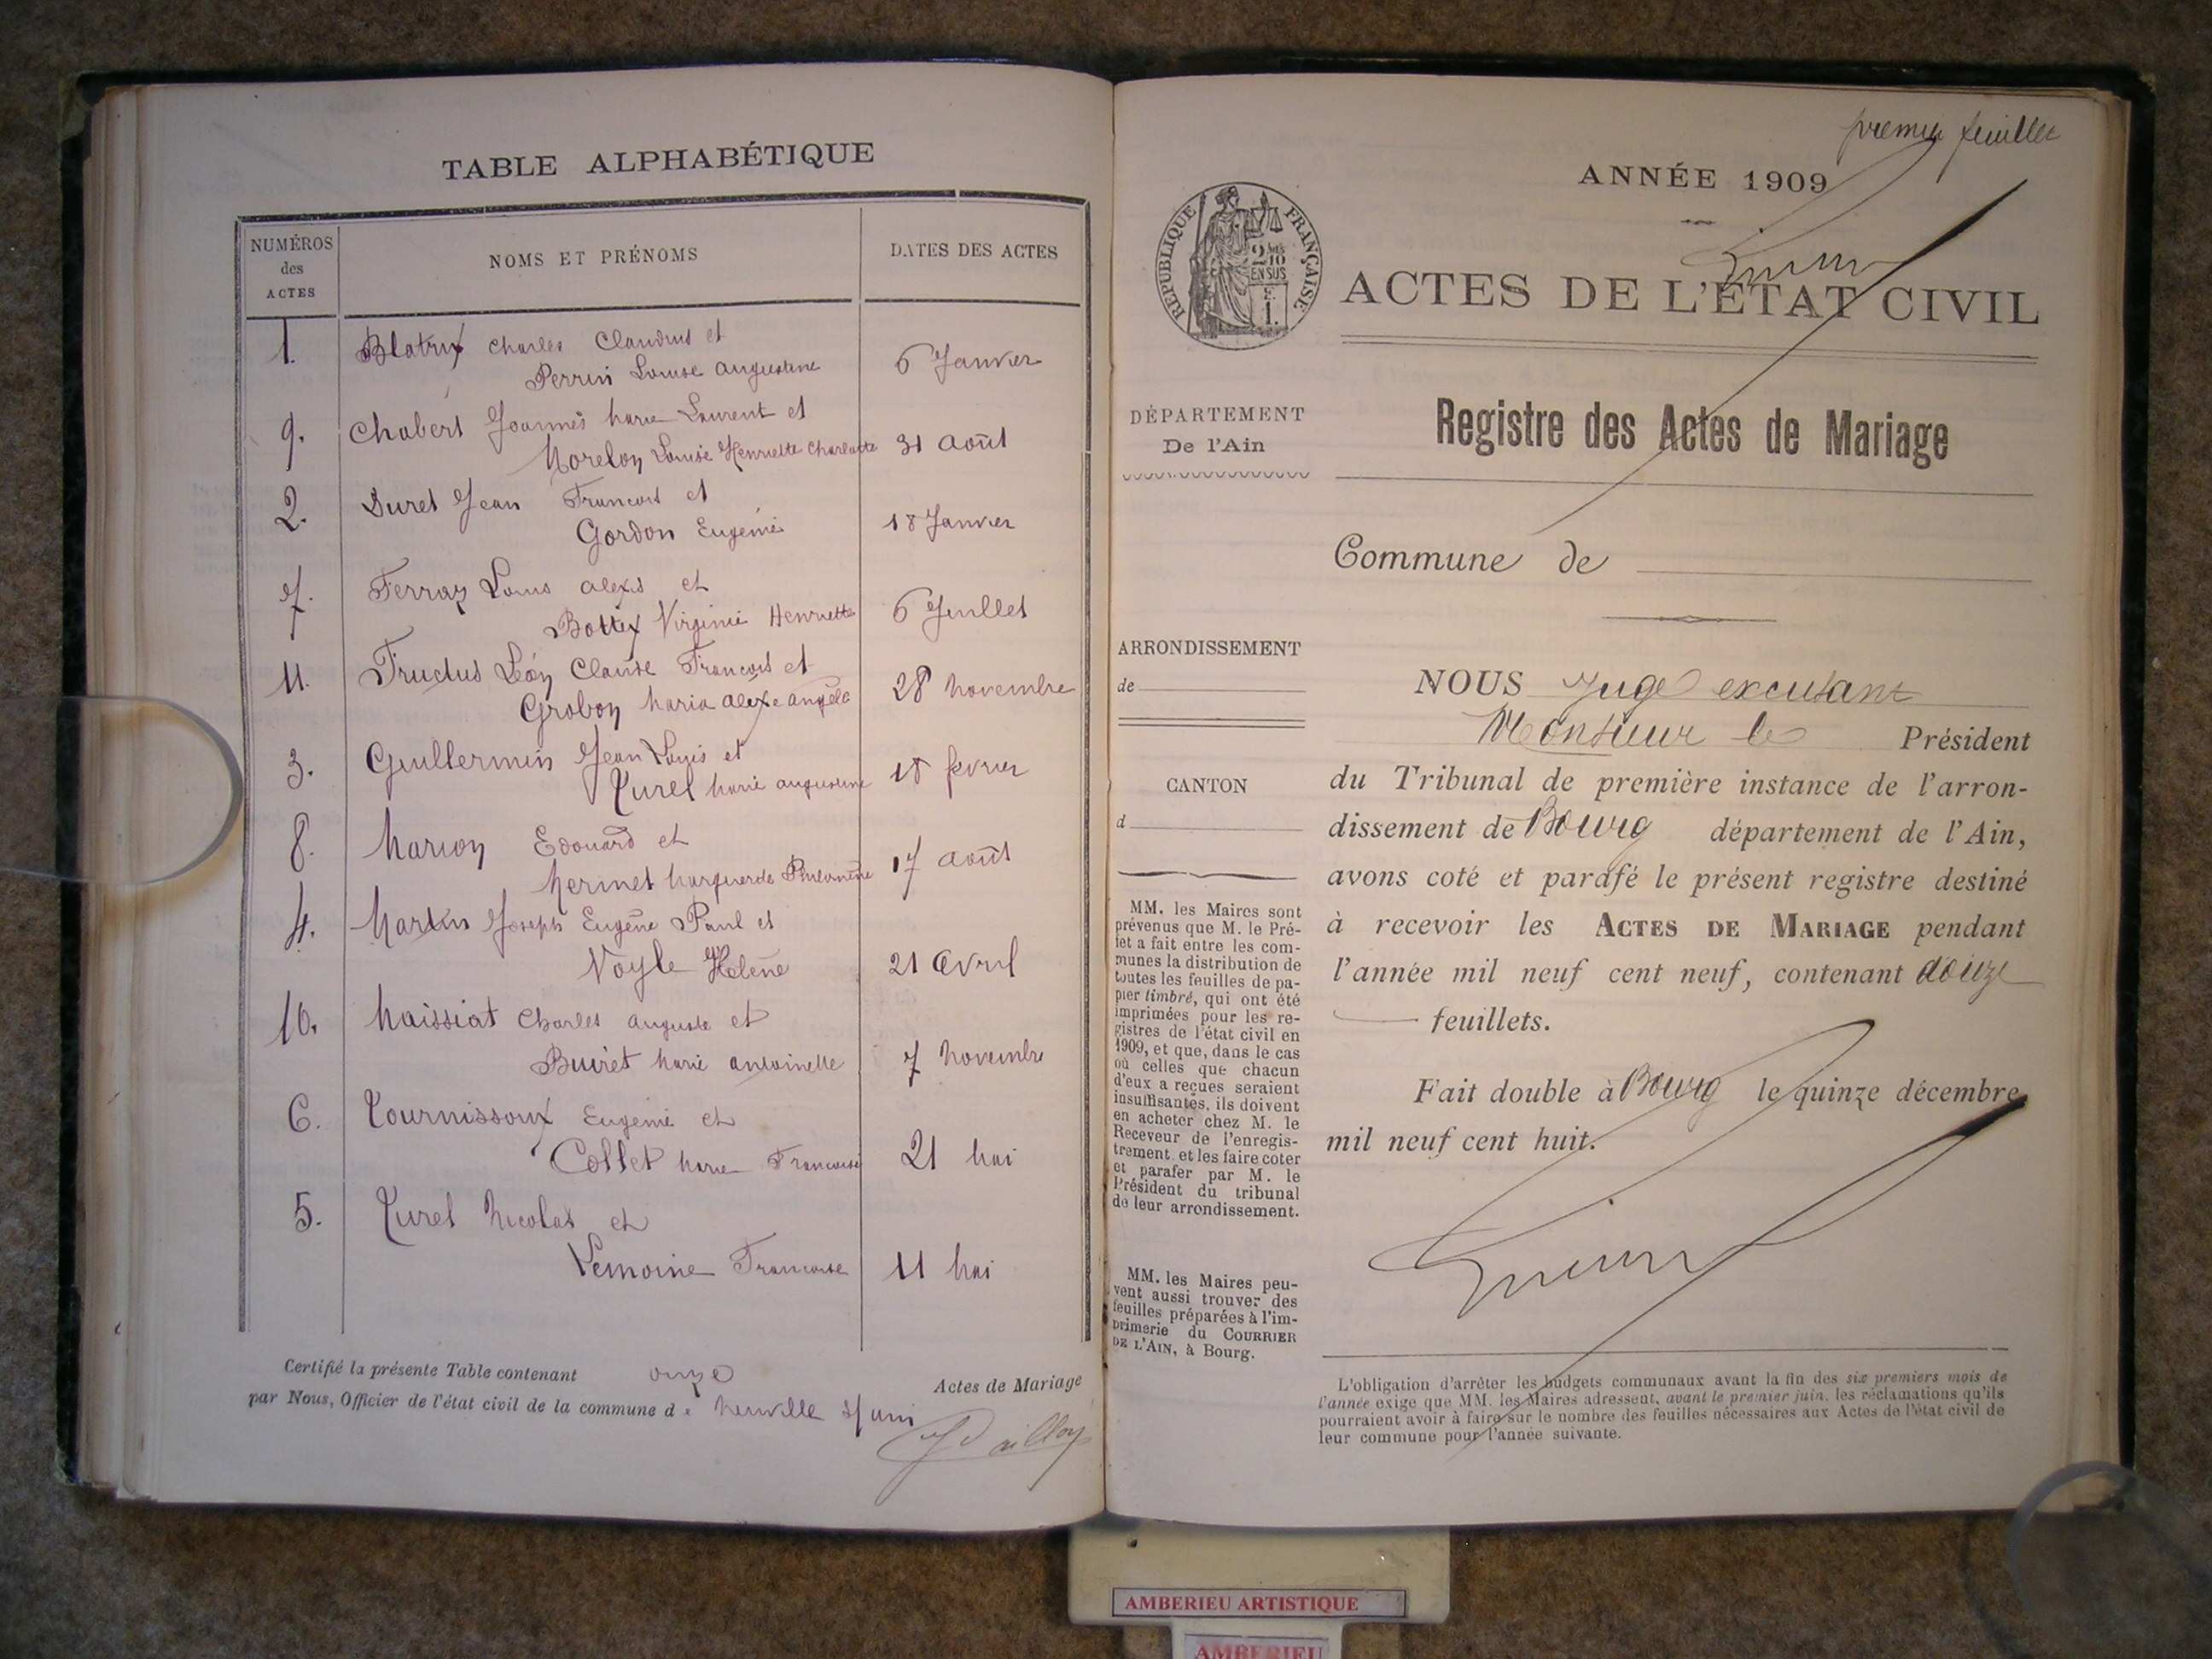 TABLE ALPHABÉTIQUE
NUMÉROS
des
ACTES
NOMS ET PRÉNOMS
DATES DES ACTES
1. Blatrix Charles Claudius et
Perrin Louise Augustine 6 Janvier
9. Chabert Joannès Marie Laurent et
Morelon Louise Henriette Charlotte 31 Août
2. Duret Jean François et
Gordon Eugénie 18 Janvier
7. Ferraz Louis Alexis et
Bottex Virginie Henriette 6 Juillet
11. Fructus Léon Claude François et
Grobon Maria Alexe Angèle 28 Novembre
3. Guillermin Jean Louis et
Turel Marie Augustine 18 février
8. Marion Edouard et
Mermet Marguerite Philomène 17 Août
4. Martin Joseph Eugène Paul et
Noyle Hélène 21 Avril
10. Maissiat Charles Auguste et
Buiret Marie Antoinette 7 Novembre
6. Tournissoux Eugénie et
Collet Marie Françoise 21 Mai
5. Turel Nicolas et
Lemoine Françoise 11 Mai
Certifié la présente Table contenant onze Actes de Mariage
par Nous, Officier de l'état civil de la commune de Neuville s/ Ain
premier feuillet
ANNÉE 1909
RÉPUBLIQUE FRANÇAISE
2/10
EN SUS
F.
1.
ACTES DE L'ÉTAT CIVIL
DÉPARTEMENT
De l'Ain
Registre des Actes de Mariage
Commune de
ARRONDISSEMENT
de
CANTON
d
MM. les Maires sont
prévenus que M. le Pré-
fet a fait entre les com-
munes la distribution de
toutes les feuilles de pa-
pier timbré, qui ont été
imprimées pour les re-
gistres de l'état civil en
1909, et que, dans le cas
où celles que chacun
d'eux a reçues seraient
insuffisantes, ils doivent
en acheter chez M. le
Receveur de l'enregis-
trement et les faire coter
et parafer par M. le
Président du tribunal
de leur arrondissement.
MM. les Maires peu-
vent aussi trouver des
feuilles préparées à l'im-
primerie du COURRIER
DE L'AIN, à Bourg.
NOUS Juge excusant
Monsieur le Président
du Tribunal de première instance de l'arron-
dissement de Bourg département de l'Ain,
avons coté et parafé le présent registre destiné
à recevoir les ACTES DE MARIAGE pendant
l'année mil neuf cent neuf, contenant douze
feuillets.
Fait double à Bourg le quinze décembre
mil neuf cent huit.
L'obligation d'arrêter les budgets communaux avant la fin des six premiers mois de
l'année exige que MM. les Maires adressent, avant le premier juin, les réclamations qu'ils
pourraient avoir à faire sur le nombre des feuilles nécessaires aux Actes de l'état civil de
leur commune pour l'année suivante.
AMBERIEU ARTISTIQUE
AMBERIEU